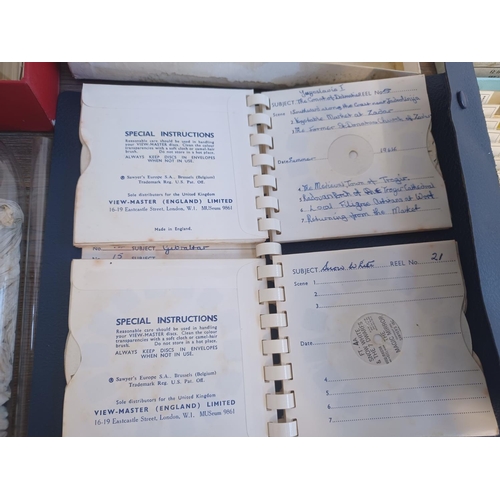 SPECIAL INSTRUCTIONS
Reasonable care should be used in handling
your VIEW-MASTER discs. Clean the colour
transparencies with a soft cloth or camel-hair
brush. Do not store in a hot place.
ALWAYS KEEP DISCS IN ENVELOPES
WHEN NOT IN USE.
® Sawyer's Europe S.A., Brussels (Belgium)
Trademark Reg. U.S. Pat. Off.
Sole distributors for the United Kingdom
VIEW-MASTER (ENGLAND) LIMITED
16-19 Eastcastle Street, London, W.1. MUSeum 9861
Made in England.
Yugoslavia I
SUBJECT The Coast of Dalmatia REEL No
Scene along the Coast near
Vegetable Market at Zadar
The Former St Donatus Church of Zadar
Date Summer 19
The Medieval Town of Trogir
of Trogir Cathedral
Local Filigree at Work
Returning from the Market
15 SUBJECT Gibraltar
SPECIAL INSTRUCTIONS
Reasonable care should be used in handling
your VIEW-MASTER discs. Clean the colour
transparencies with a soft cloth or camel-hair
brush. Do not store in a hot place.
ALWAYS KEEP DISCS IN ENVELOPES
WHEN NOT IN USE.
® Sawyer's Europe S.A., Brussels (Belgium)
Trademark Reg. U.S. Pat. Off.
Sole distributors for the United Kingdom
VIEW-MASTER (ENGLAND) LIMITED
16-19 Eastcastle Street, London, W.1. MUSeum 9861
SUBJECT Snow White REEL No. 21
Scene 1
2
3
Date
4
5
6
7